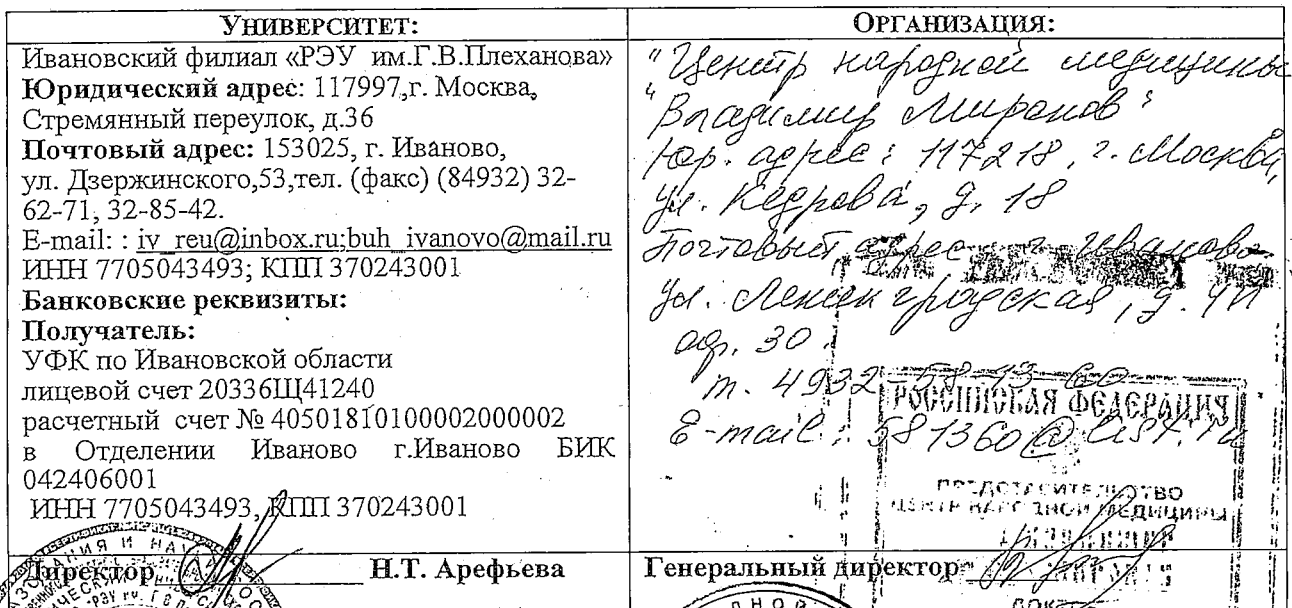 УНИВЕРСИТЕТ:
Ивановский филиал «РЭУ им.Г.В.Плеханова»
Юридический адрес: 117997,г. Москва,
Стремянный переулок, д.36
Почтовый адрес: 153025, г. Иваново,
ул. Дзержинского,53,тел. (факс) (84932) 32-
62-71, 32-85-42.
E-mail: : iv_reu@inbox.ru;buh_ivanovo@mail.ru
ИНН 7705043493; КПП 370243001
Банковские реквизиты:
Получатель:
УФК по Ивановской области
лицевой счет 20336Щ41240
расчетный счет № 40501810100002000002
в Отделении Иваново г.Иваново БИК
042406001
ИНН 7705043493, КПП 370243001
Директор Н.Т. Арефьева
ОРГАНИЗАЦИЯ:
"Центр народной медицины
"Владимир Миранов"
Юр. адрес: 117218, г. Москва,
ул. Кедрова, д. 18
Почтовый адрес: г. Иваново
ул. Ленинградская, д.
оф. 30.
т. 4932-58-13-60
E-mail: 581360@
РОССИЙСКАЯ ФЕДЕРАЦИЯ
ПРЕДСТАВИТЕЛЬСТВО
ЦЕНТР НАРОДНОЙ МЕДИЦИНЫ
Генеральный директор